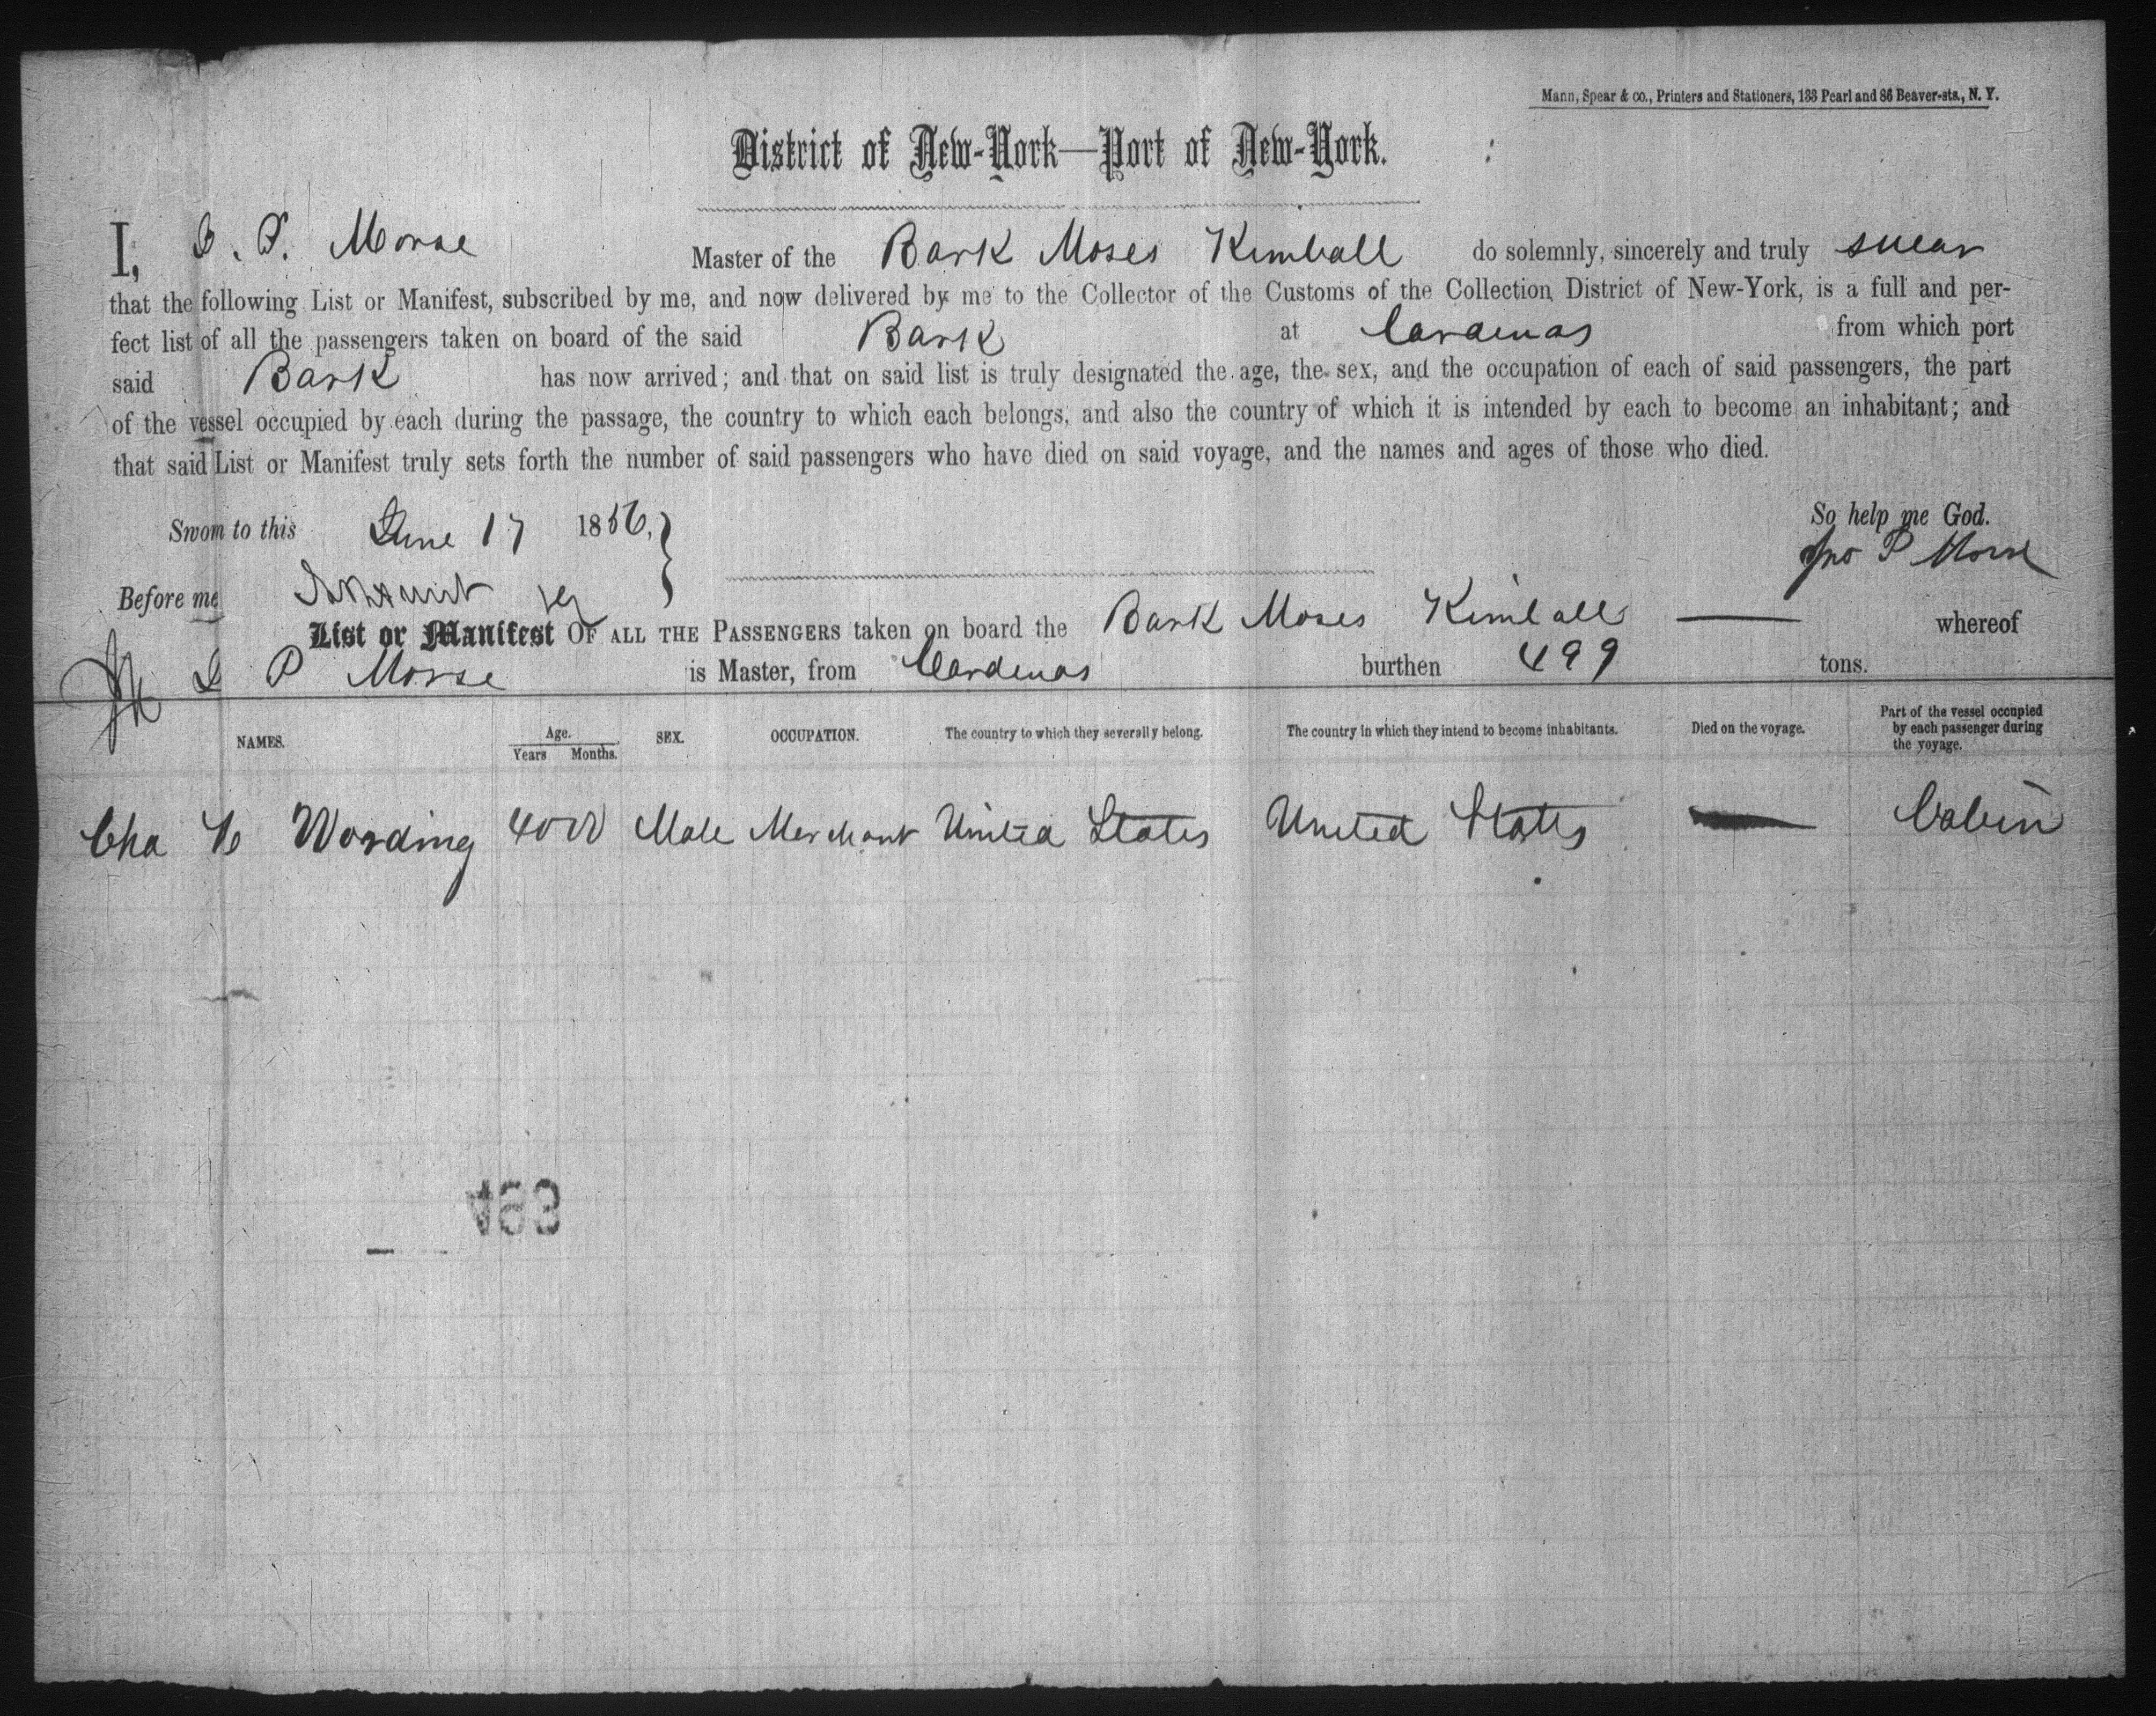 Mann, Spear & co., Printers and Stationers, 133 Pearl and 86 Beaver-sts., N. Y.
District of New-York—Port of New-York.
I, J. P. Morse Master of the Bark Moses Kimball do solemnly, sincerely and truly swear
that the following List or Manifest, subscribed by me, and now delivered by me to the Collector of the Customs of the Collection District of New-York, is a full and per-
fect list of all the passengers taken on board of the said Bark at Cardenas from which port
said Bark has now arrived; and that on said list is truly designated the age, the sex, and the occupation of each of said passengers, the part
of the vessel occupied by each during the passage, the country to which each belongs, and also the country of which it is intended by each to become an inhabitant; and
that said List or Manifest truly sets forth the number of said passengers who have died on said voyage, and the names and ages of those who died.
So help me God.
Sworn to this June 17 1856,
Jno P Morse
Before me
List or Manifest OF ALL THE PASSENGERS taken on board the Bark Moses Kimball — whereof
J P Morse is Master, from Cardenas burthen 499 tons.
NAMES. Age. Years Months. SEX. OCCUPATION. The country to which they severally belong. The country in which they intend to become inhabitants. Died on the voyage. Part of the vessel occupied by each passenger during the voyage.
Cha Wording 40 Male Merchant United States United States — Cabin